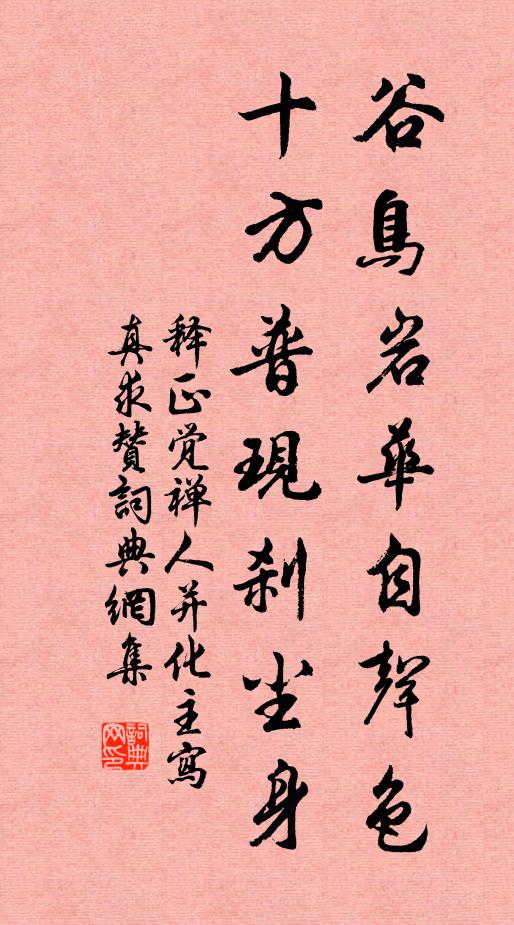 谷鳥岩華自聲色
十方普現刹尘身
释正觉禅人并化主寫
真求赞詞典網集
詞典网印